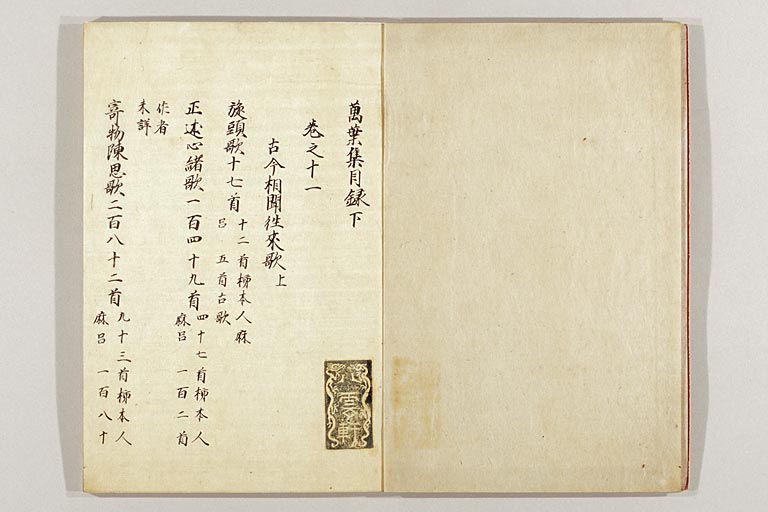 萬葉集目録下
巻之十一
古今相聞往來歌上
旋頭歌十七首 十二首柿本人麻
呂 五首古歌
正述心緒歌一百四十九首 四十七首柿本人
麻呂 一百二首
作者
未詳
寄物陳思歌二百八十二首 九十三首柿本人
麻呂 一百八十